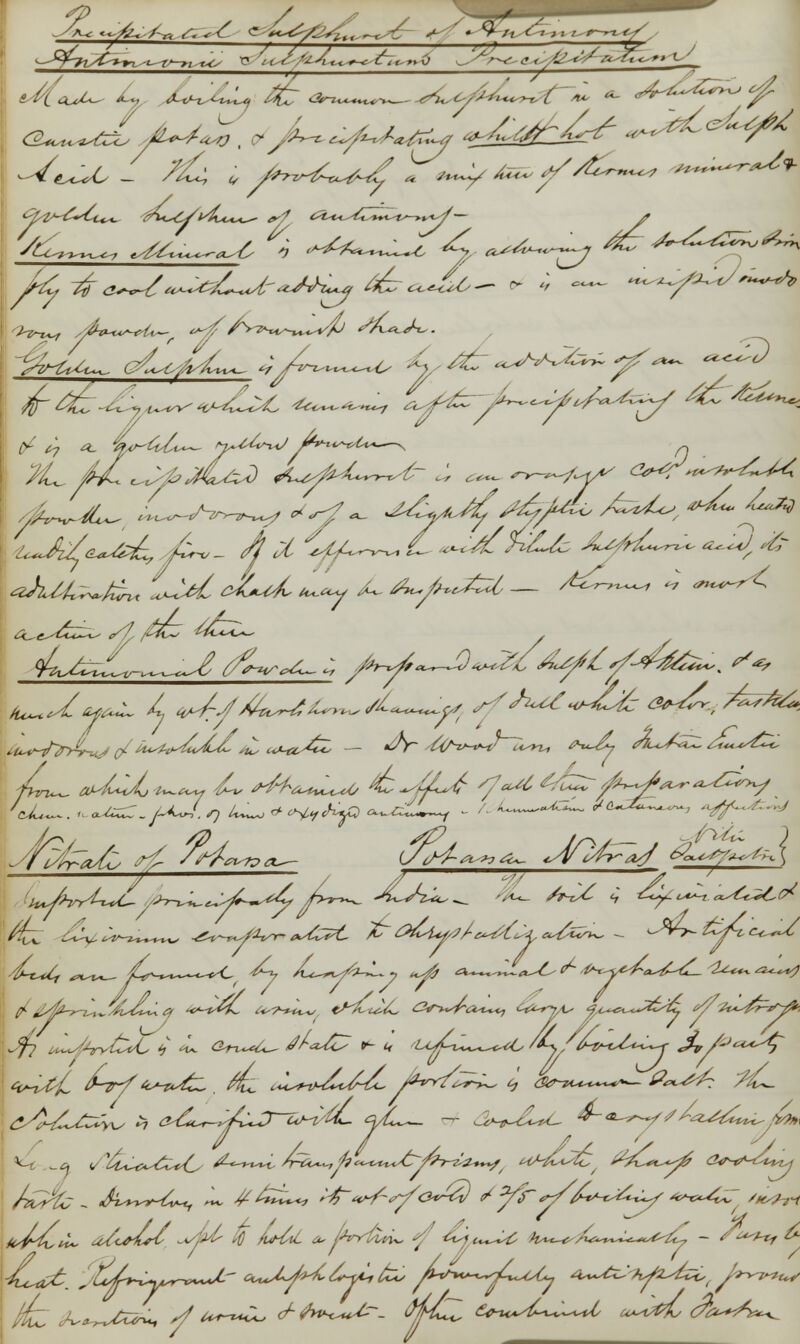 Precipitated Sulphuret of Antimony
Antimonii Sulphuretum Precipitatum
Made by boiling the common sulphuret in a solution of
Caustic potass, & precipitating whilst hot with Sulph
Acid – This is probably a mixture of Kermes mineral &
golden sulphur of antimony –
Kermes Mineral is obtained by allowing the solution sim
ply to cool without adding the acid – & is an insipid inodo
rous powder, of brownish shade.
Golden Sulphur is formed by the addition of an acid
to the liquor which remains after precipitating the Kermes
& is a golden yellow powder
The precipitated sulphuret is an orange cold insoluble
powder, inodorous & of a slightly styptic taste, when heated
readily catches fire – If it effervesce with dilute sulphuric acid, its
adulteration with chalk may be suspected – Kermes is most
active of the three
Antimonial Powder is prepared with sulph of Antim. & as
much again by wt. of Hartshorn shavings, of dull white color, tasteless
inodorous & insoluble in water – Dr Wood uses only Tartar Emetic
from which may be obtained the effects of all other preparations
chem. nature – phos. of lime & oxydized antimony – rheumatism & cutaneous affections
Nitrate of Potassa Potassae Nitras Nitre Saltpetre }
Imported principally from India – The soil is lixiviated &
the lixivium evaporated to chrystallization – Artificial
beds are formed, by heaping up animal & vegetable remains
& sprinkling with urine, which contains large quantity of nitrog
As imported is in crude state & is refined by boiling 30 parts
with 6 of water, the insoluble portion is common salt. The
Solution is clarified with glue & cooled to crystalline form
Long striated semitransparent prisms, white, sharp cooling
taste – Dissolves in 4 times its wt of cold & 2/5 of boiling water, insol
uble in alcohol, apt to hold a portion of liquid mechanically – Fuses by
heat. Refrigerant antiphlogistic powerfully antiseptic, promo
the secretions of urine & sweat – Often combined with Tartar